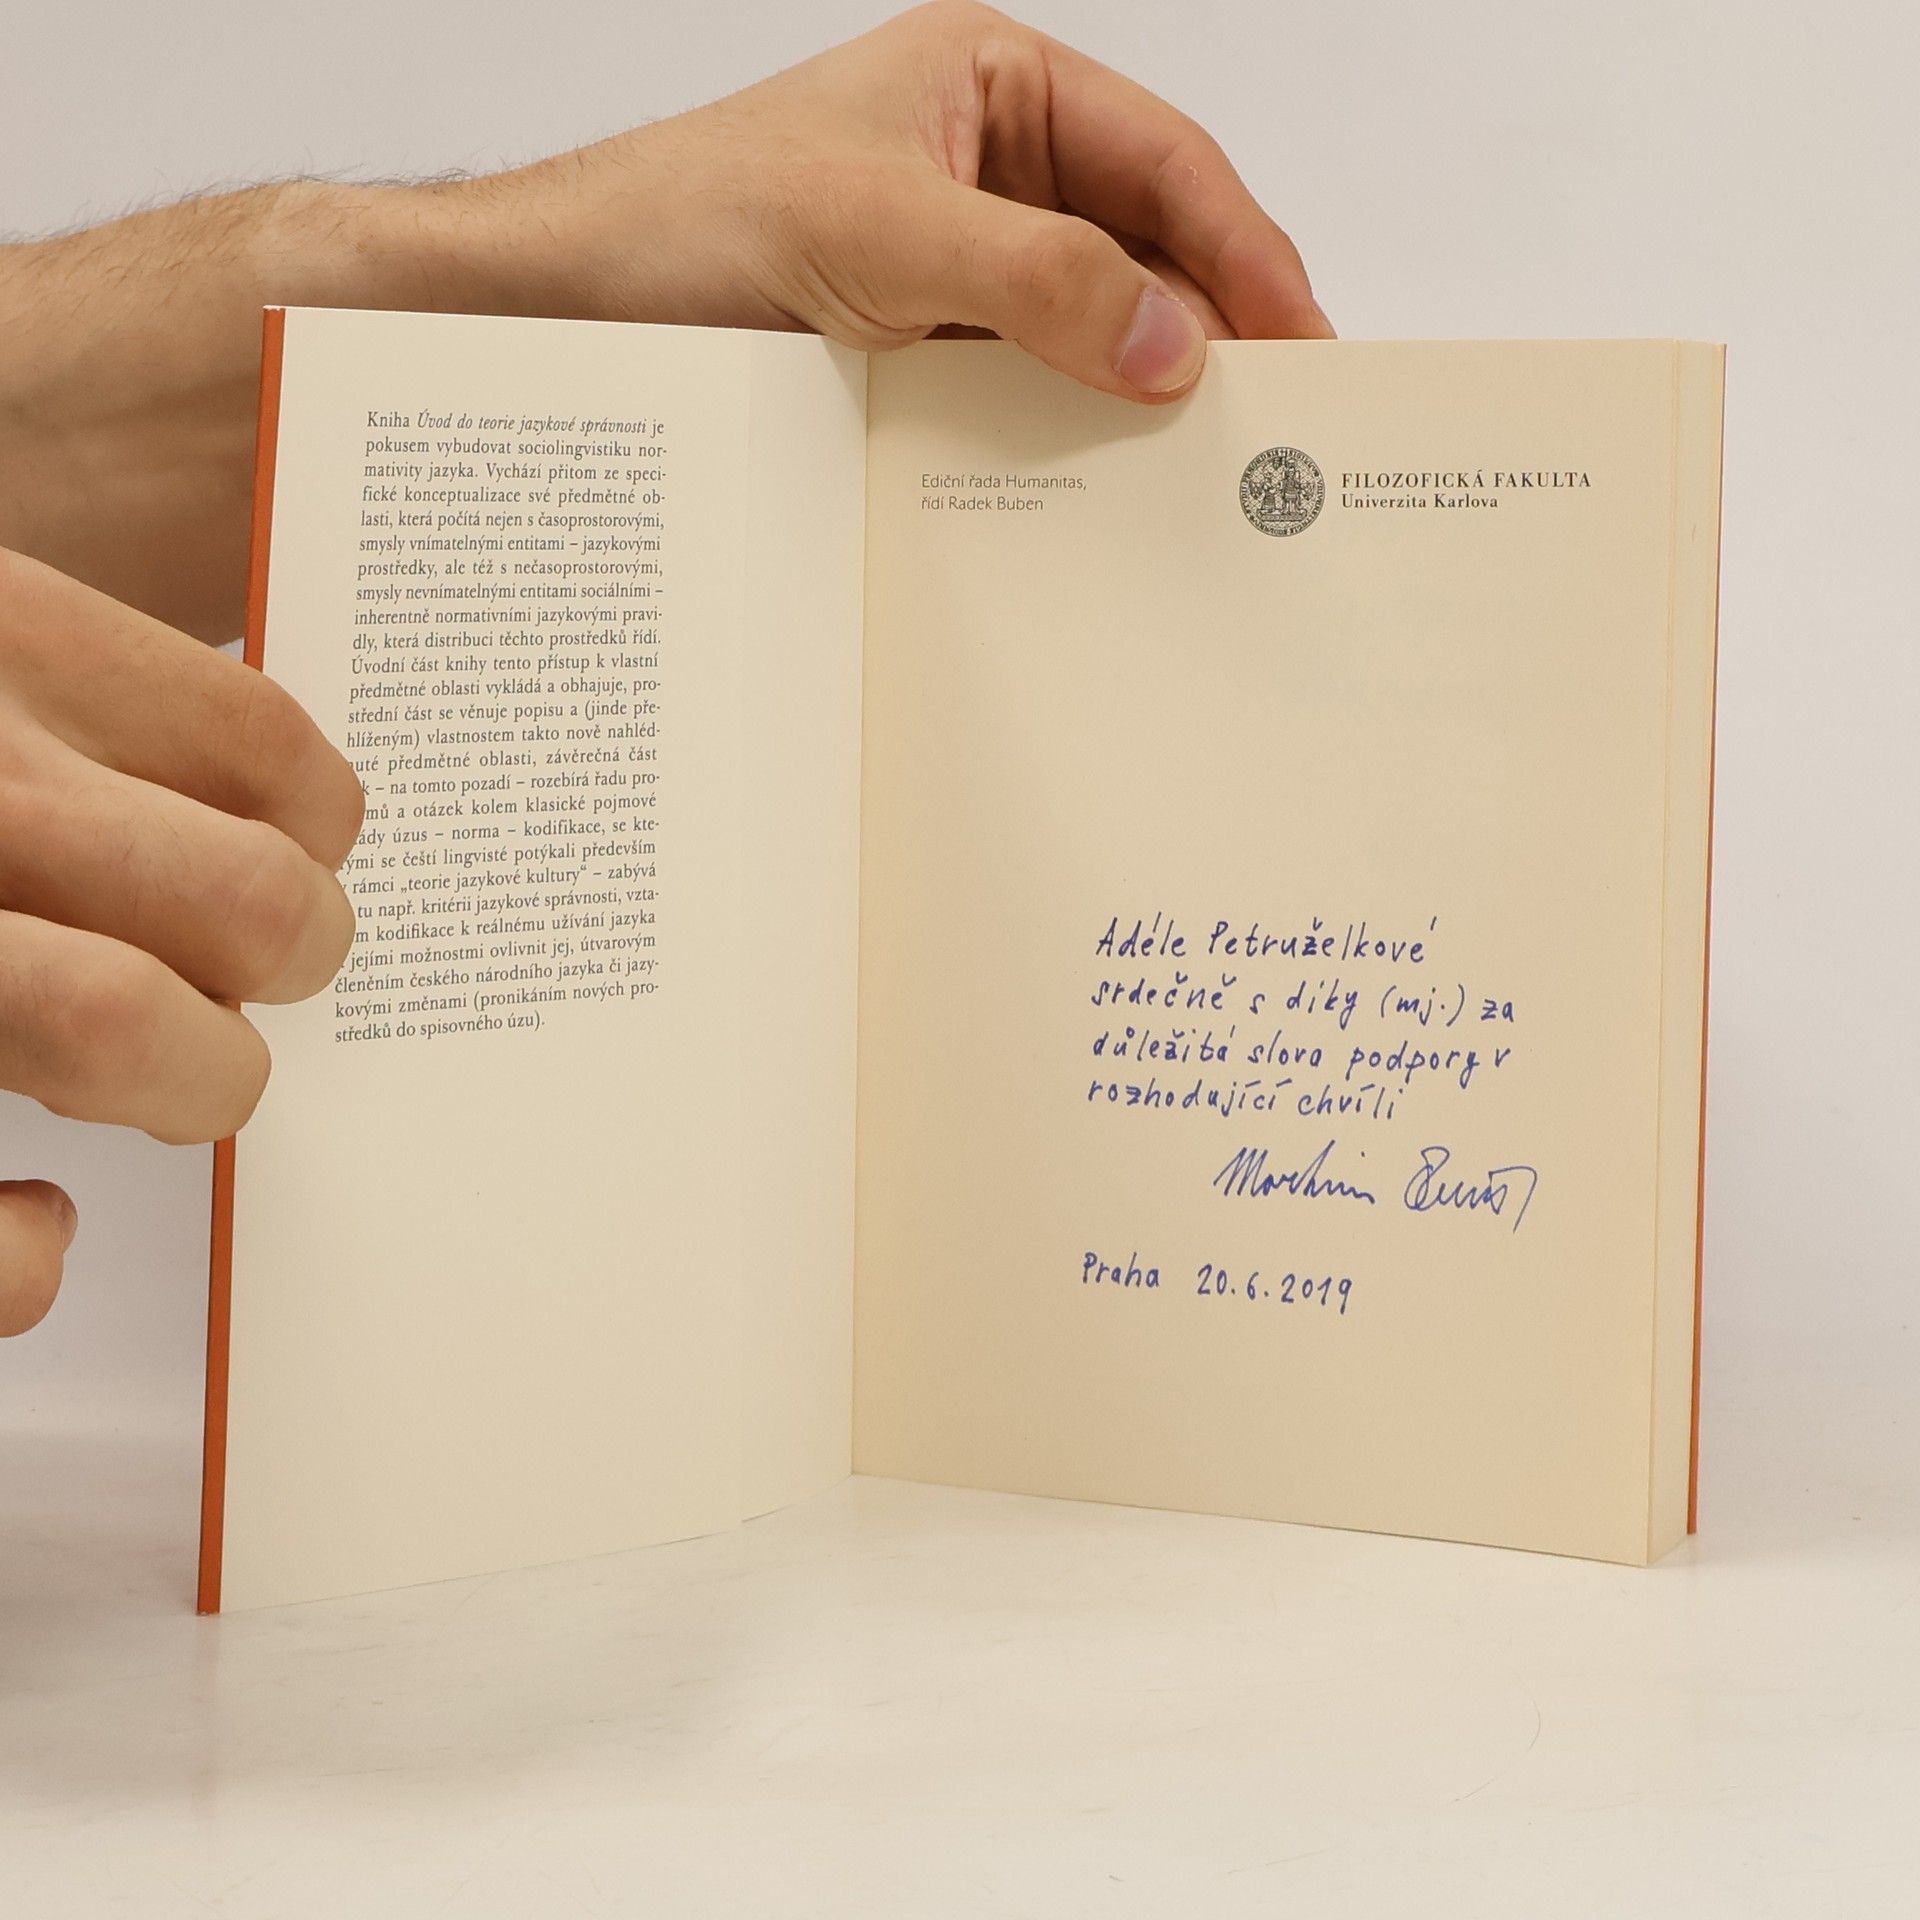 Kniha Úvod do teorie jazykové správnosti je
pokusem vybudovat sociolingvistiku nor-
mativity jazyka. Vychází přitom ze speci-
fické konceptualizace své předmětné ob-
lasti, která počítá nejen s časoprostorovými,
smysly vnímatelnými entitami – jazykovými
prostředky, ale též s nečasoprostorovými,
smysly nevnímatelnými entitami sociálními –
inherentně normativními jazykovými pravi-
dly, která distribuci těchto prostředků řídí.
Úvodní část knihy tento přístup k vlastní
předmětné oblasti vykládá a obhajuje, pro-
střední část se věnuje popisu a (jinde pře-
hlíženým) vlastnostem takto nově nahléd-
nuté předmětné oblasti, závěrečná část
– na tomto pozadí – rozebírá řadu pro-
a otázek kolem klasické pojmové
úzus – norma – kodifikace, se kte-
rými se čeští lingvisté potýkali především
v rámci „teorie jazykové kultury“ – zabývá
tu např. kritérii jazykové správnosti, vzta-
kodifikace k reálnému užívání jazyka
jejími možnostmi ovlivnit jej, útvarovým
členěním českého národního jazyka či jazy-
kovými změnami (pronikáním nových pro-
středků do spisovného úzu).
Ediční řada Humanitas,
řídí Radek Buben
FILOZOFICKÁ FAKULTA
Univerzita Karlova
Adéle Petruželkové
srdečně s díky (mj.) za
důležitá slova podpory v
rozhodující chvíli
Martin
Praha 20.6.2019